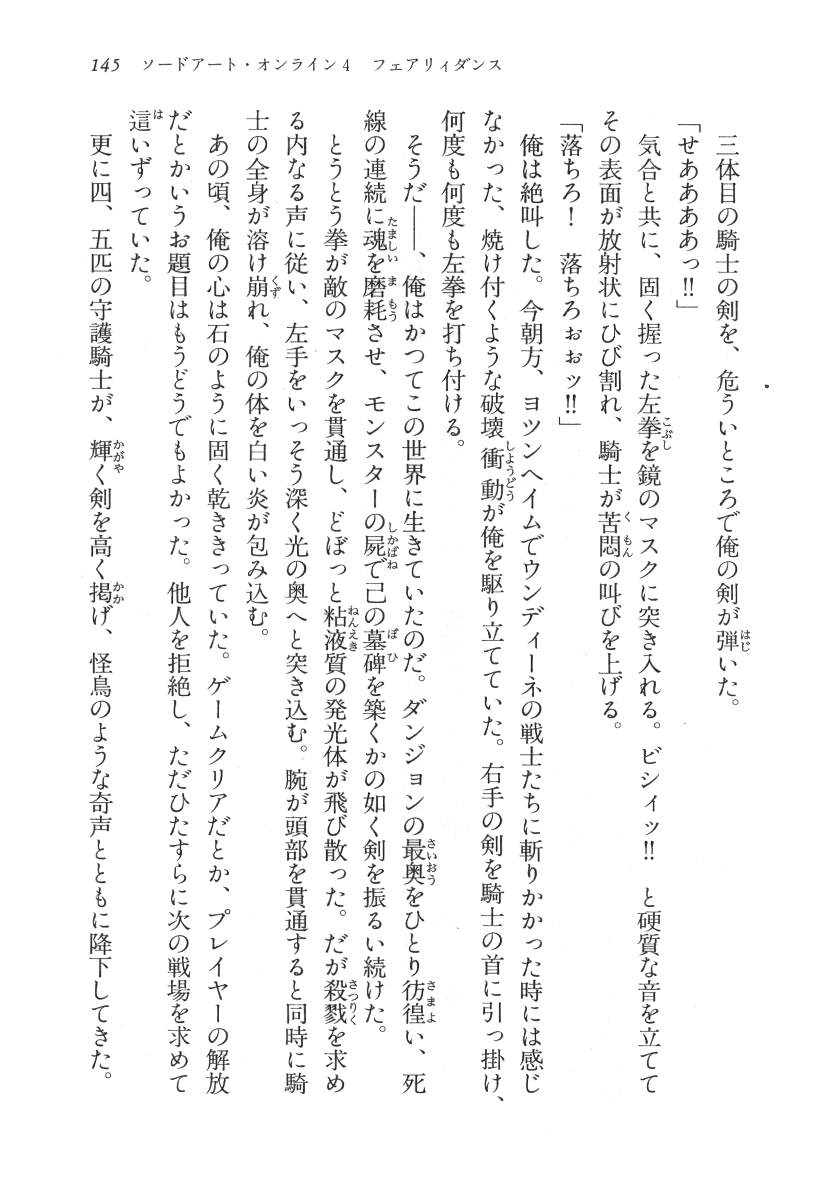 145　ソードアート・オンライン4　フェアリィダンス
三体目の騎士の剣を、危ういところで俺の剣が弾いた。
「せああああっ!!」
気合と共に、固く握った左拳を鏡のマスクに突き入れる。ビシィッ!!　と硬質な音を立てて
その表面が放射状にひび割れ、騎士が苦悶の叫びを上げる。
「落ちろ！　落ちろぉぉッ!!」
俺は絶叫した。今朝方、ヨツンヘイムでウンディーネの戦士たちに斬りかかった時には感じ
なかった、焼け付くような破壊衝動が俺を駆り立てていた。右手の剣を騎士の首に引っ掛け、
何度も何度も左拳を打ち付ける。
そうだ——、俺はかつてこの世界に生きていたのだ。ダンジョンの最奥をひとり彷徨い、死
線の連続に魂を磨耗させ、モンスターの屍で己の墓碑を築くかの如く剣を振るい続けた。
とうとう拳が敵のマスクを貫通し、どぼっと粘液質の発光体が飛び散った。だが殺戮を求め
る内なる声に従い、左手をいっそう深く光の奥へと突き込む。腕が頭部を貫通すると同時に騎
士の全身が溶け崩れ、俺の体を白い炎が包み込む。
あの頃、俺の心は石のように固く乾ききっていた。ゲームクリアだとか、プレイヤーの解放
だとかいうお題目はもうどうでもよかった。他人を拒絶し、ただひたすらに次の戦場を求めて
這いずっていた。
更に四、五匹の守護騎士が、輝く剣を高く掲げ、怪鳥のような奇声とともに降下してきた。